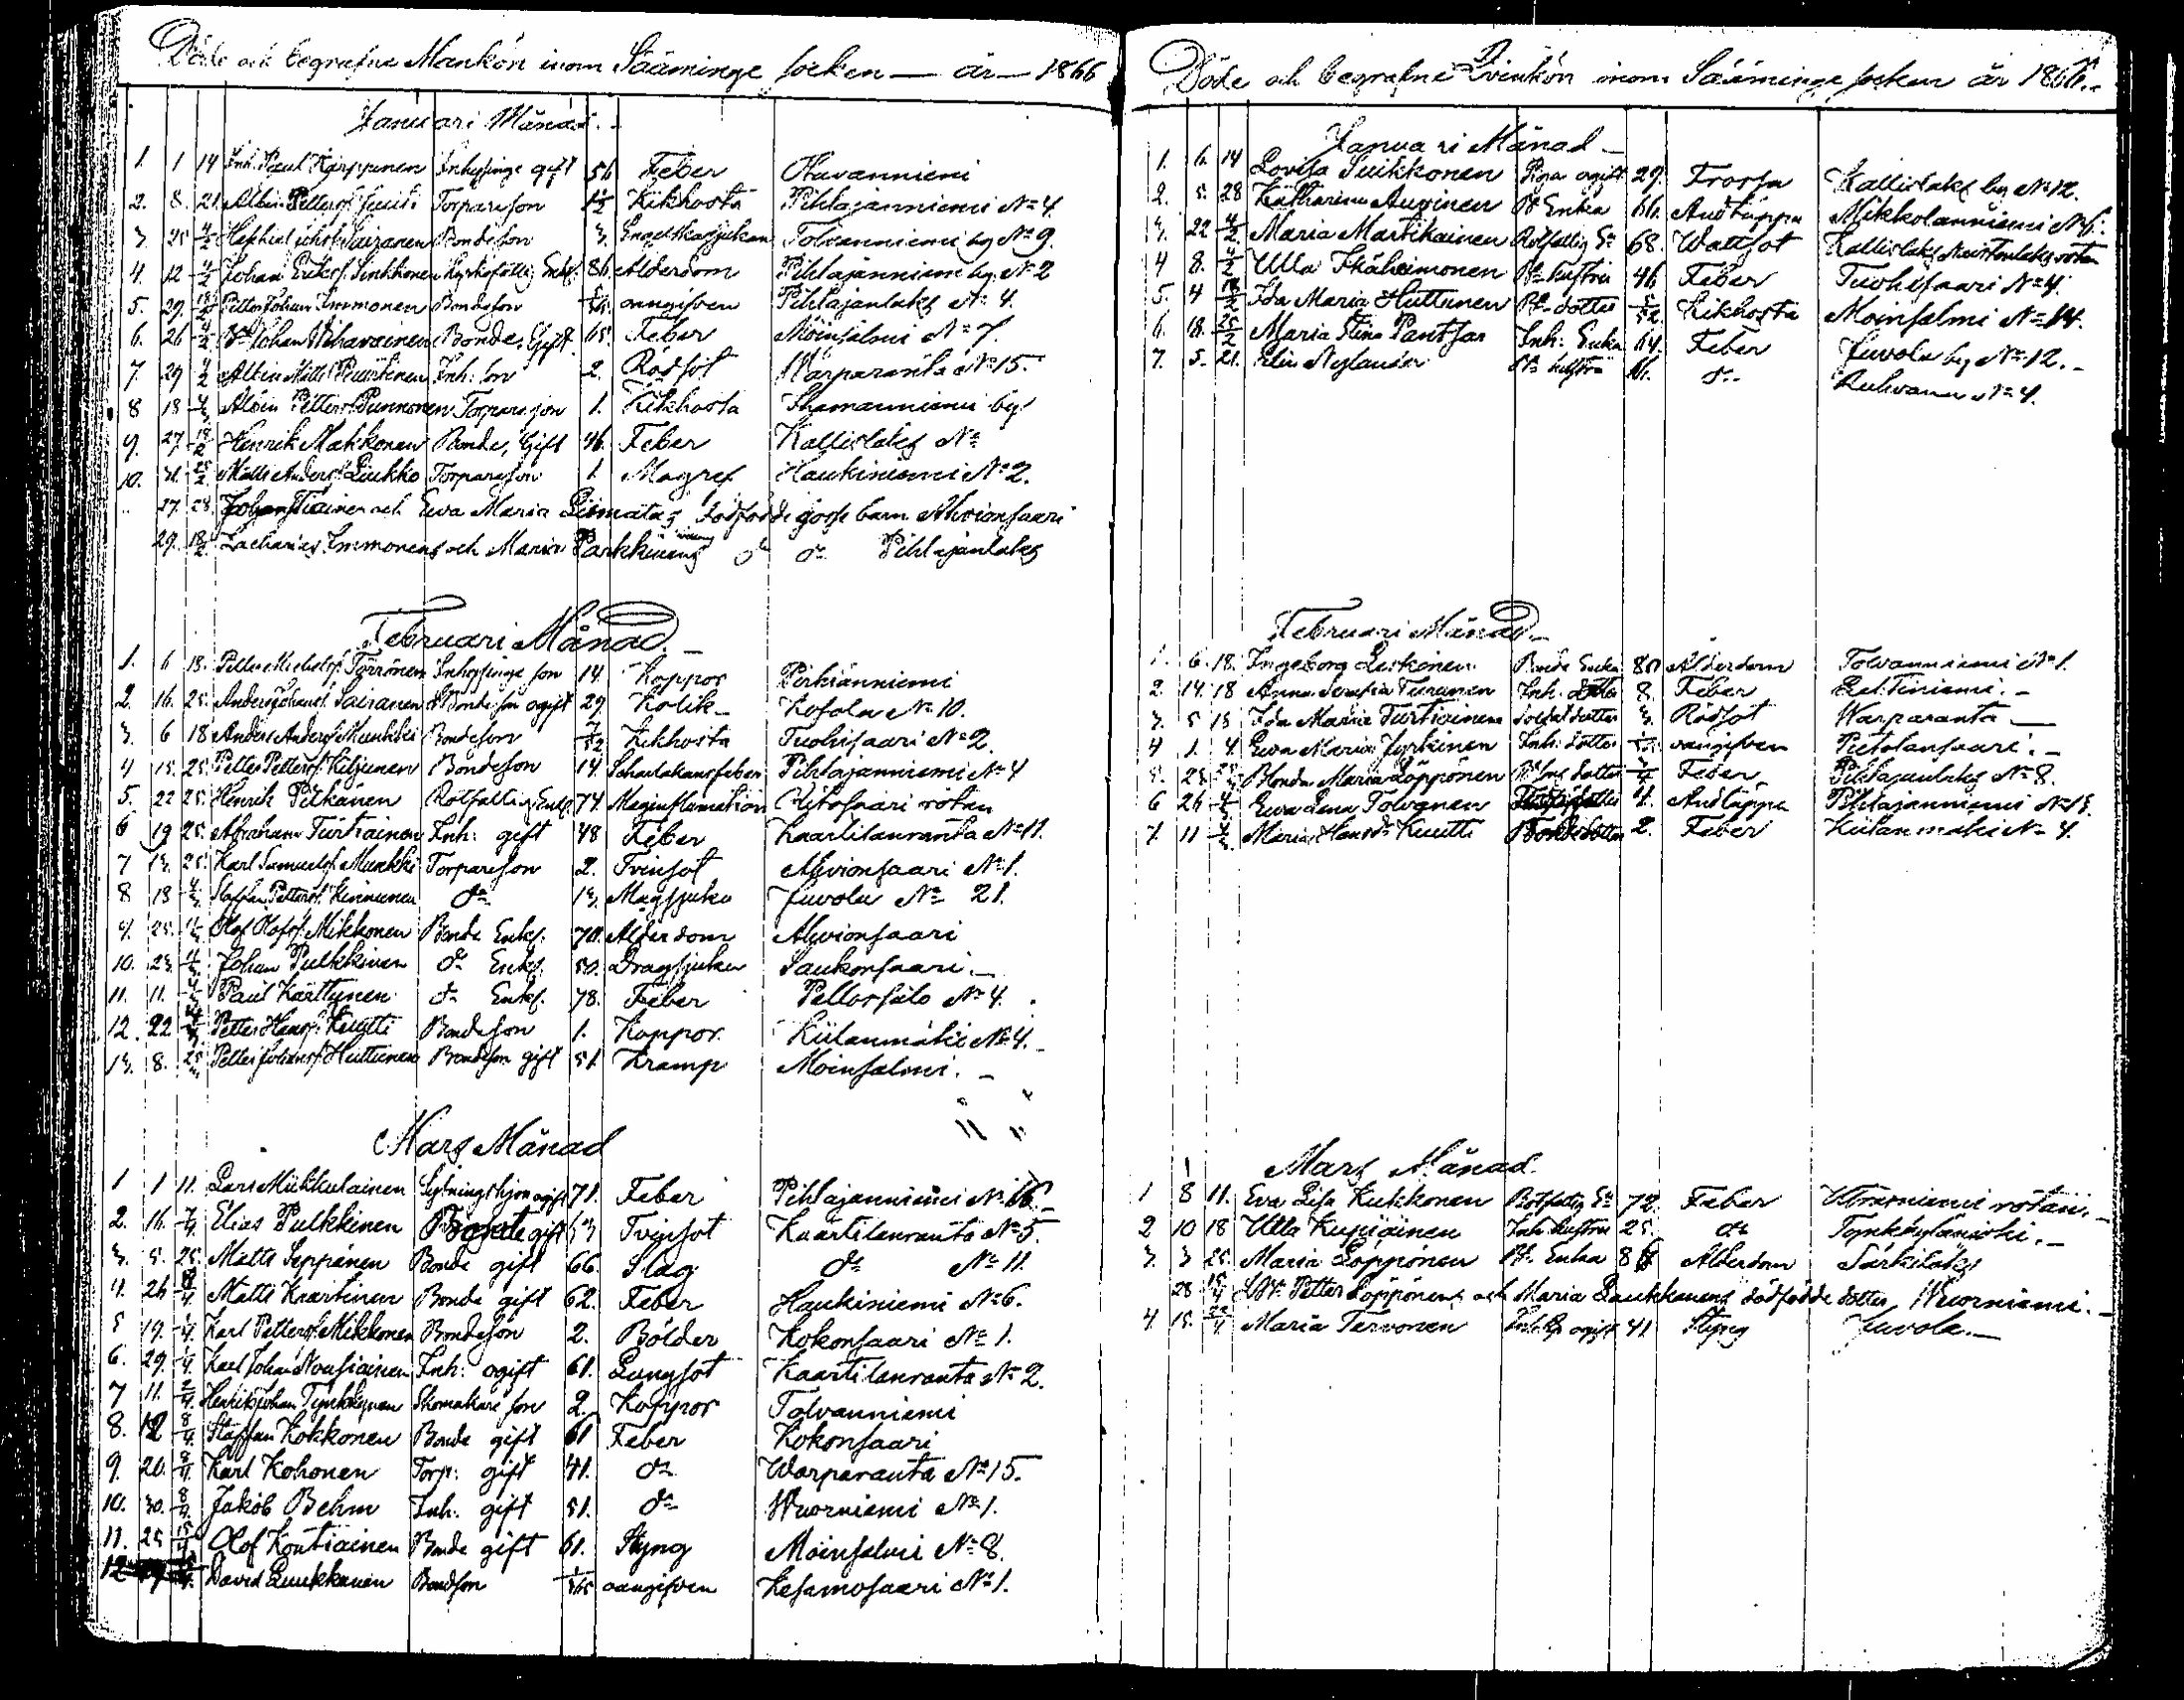 Döde och begrafne Mankön inom Sääminge socken — år — 1866
Januari Månad.
1. 1 14 Inh. Paul Karppanen Inhysinge gift 56 Feber Havanniemi
2. 8. 21. Albin Petterss. Torpareson 1/2 Kikhosta Pihlajanniemi № 4.
3. 25 4/2 Johss. Sairanen Bondeson 3. Engelska sjukan Tolvanniemi by № 9.
4. 12 4/2 Johan Erikss. Sinkkonen Kyrkofattig Enkl. 86 Ålderdom Pihlajanniemi by № 2
5. 29. 18/2 Petter Johan Immonen Bondeson oangifven Pihlajanlaks № 4.
6. 26 4/2 Johan Wihavainen Bonde, Gift 65. Feber Moinsalmi № 7.
7. 29 4/2 Albin Matts. Puustinen Inh: son 2. Rödsot Warparanta № 15.
8 18 4/2 Petterss. Punnonen Torpareson 1. Kikhosta by
9. 27. 18/2 Henrik Makkonen Bonde, Gift 46. Feber Kallislaks №
10. 31. 25/2 Matts Anderss. Liukko Torpareson 1. Magref Haukiniemi № 2.
27. 28. Johan Tiainen och Eva Maria Liimatas dödfödde gosse barn Ahvionsaari
29. 18/2 Zacharias Immonens och Maria Parkkinens do do Pihlajanlaks
Februari Månad.
1. 6 18. Petter Michelss. Törrönen Inhysinge son 14. Koppor Pirhiänniemi
2. 16. 25. Anders Johanss. Sairanen Bondeson ogift 29 Kolik Kosola № 10.
3. 6 18 Anders Anderss. Munkki Bondeson 7/52 Kikhosta Tuohisaari № 2
4 15. 25. Petter Petterss. Kiljunen Bondeson 14. Scharlakansfeber Pihlajanniemi № 4
5. 22 25. Henrik Pitkänen Rotfattig Enkl. 74. Maginflamation Ritosaari rotan
6 19 25. Abraham Turtiainen Inh: gift 48 Feber Kaartilanranta № 11.
7 13. 25. Karl Samuelss. Munkki Torpareson 2. Tvinsot Ahvionsaari № 1.
8 18 4/3 Staffan Petterss. Kinnunen do 13. Magsjuka Juvola № 21.
9. 25. 4/3 Olof Olofss. Mikkonen Bonde Enkl. 70. Ålderdom Ahvionsaari
10. 23. 4/3 Johan Pulkkinen do Enkl. 50. Dragsjuka Saukonsaari.
11. 11. 4/3 Paul Karttunen do Enkl. 78. Feber Pellossalo № 4.
12. 22 4/3 Petter Hanss. Kuutti Bondeson 1. Koppor. Kiilanmäki № 4.
13. 8. 25/3 Petter Johanss. Huttunen Bondeson gift 51 Kramp Moinsalmi.
Mars Månad
1 1 11. Lars Mukkulainen Sytningshjon ogift 71. Feber Pihlajanniemi № 16.
2. 16. Elias Pulkkinen gift 53 Tvinsot Kaartilanranta № 5.
3. 5. 25. Matts Seppänen Bonde gift 66. Slag do № 11.
4. 26 8/4 Matts Kaartinen Bonde gift 62. Feber Haukiniemi № 6.
5 19. Karl Petterss. Mikkonen Bondeson 2. Bölder Kokonsaari № 1.
6. 29. Karl Johan Nousiainen Inh: ogift 61. Lungsot Kaartilanranta № 2.
7 11. 2/4 Henrik Johan Tynkkynen Skomakare son 2. Koppor Tolvanniemi
8. 12 8/4 Staffan Kokkonen Bonde gift 61 Feber Kokonsaari
9. 20. 8/4 Karl Kohonen Torp: gift 41. do Warparanta № 15.
10. 30. 8/4 Jakob Behm Inh. gift 51. do Wuorniemi № 1.
11. 25 15/4 Olof Kontiainen Bonde gift 61. Styng Moinsalmi № 8.
12 David Luukkanen Bondson 1/365 oangifven Kesamosaari № 1.
Döde och begrafne Qvinkön inom Sääminge socken år 1866.
Januari Månad
1. 6. 14 Lovisa Suikkonen Piga ogift 29. Frossa Kallislaks by № 12.
2. 5. 28 Katharina Auvinen Bd Enka 66. Andtäppa Mikkolanniemi № 6.
3. 22 4/2 Maria Martikainen Rotfattig Ea 68. Wattsot Kallislaks
4 8. 4/2 Ulla Ikäheimonen Bd hustru 46 Feber Tuohisaari № 4.
5. 4 18/2 Ida Maria Huttunen Bd dotter 5/52. Kikhosta Moinsalmi № 14.
6. 18. 25/2 Maria Stina Pantsar Inh: Enka 64. Feber Juvola by № 12.
7. 5. 21. Elin Nylander Bd hustru 61. do № 4.
Februari Månad
1. 6. 18. Ingeborg Leskinen Bonde Enka 80 Ålderdom Tolvanniemi № 1.
2. 14. 18 Anna Serafia Turunen Inh: dotter 8. Feber
3. 5 18 Ida Maria Turtiainen Soldat dotter 3. Rödsot Warparanta
4 1. 4 Eva Maria Jyrkinen Inh: dotter oangifven Pietolansaari.
5. 23 Blenda Maria Löppönen dotter Feber Pihlajanlaks № 8.
6 26 4/3 Eva Lena Tolvanen 4. Andtäppa Pihlajanniemi
7. 11 4/3 Maria Hansdr. Kuutti Bondedotter 2. Feber Kiilanmäki № 4.
Mars Månad.
1 8 11. Eva Lisa Kukkonen Rotfattig Ea 72. Feber rotan.
2 10 18 Ulla Kupiainen Inh. hustru 25. do Tynkkylänjoki.
3. 3 25. Maria Löppönen Bd. Enka 86 Ålderdom Särkilaks
28 15/4 Petter Löppönens och Maria Laukkanens dödfödde dotter, Wuorniemi.
4 15. 22/4 Maria Tervonen ogift 41 Styng Juvola.